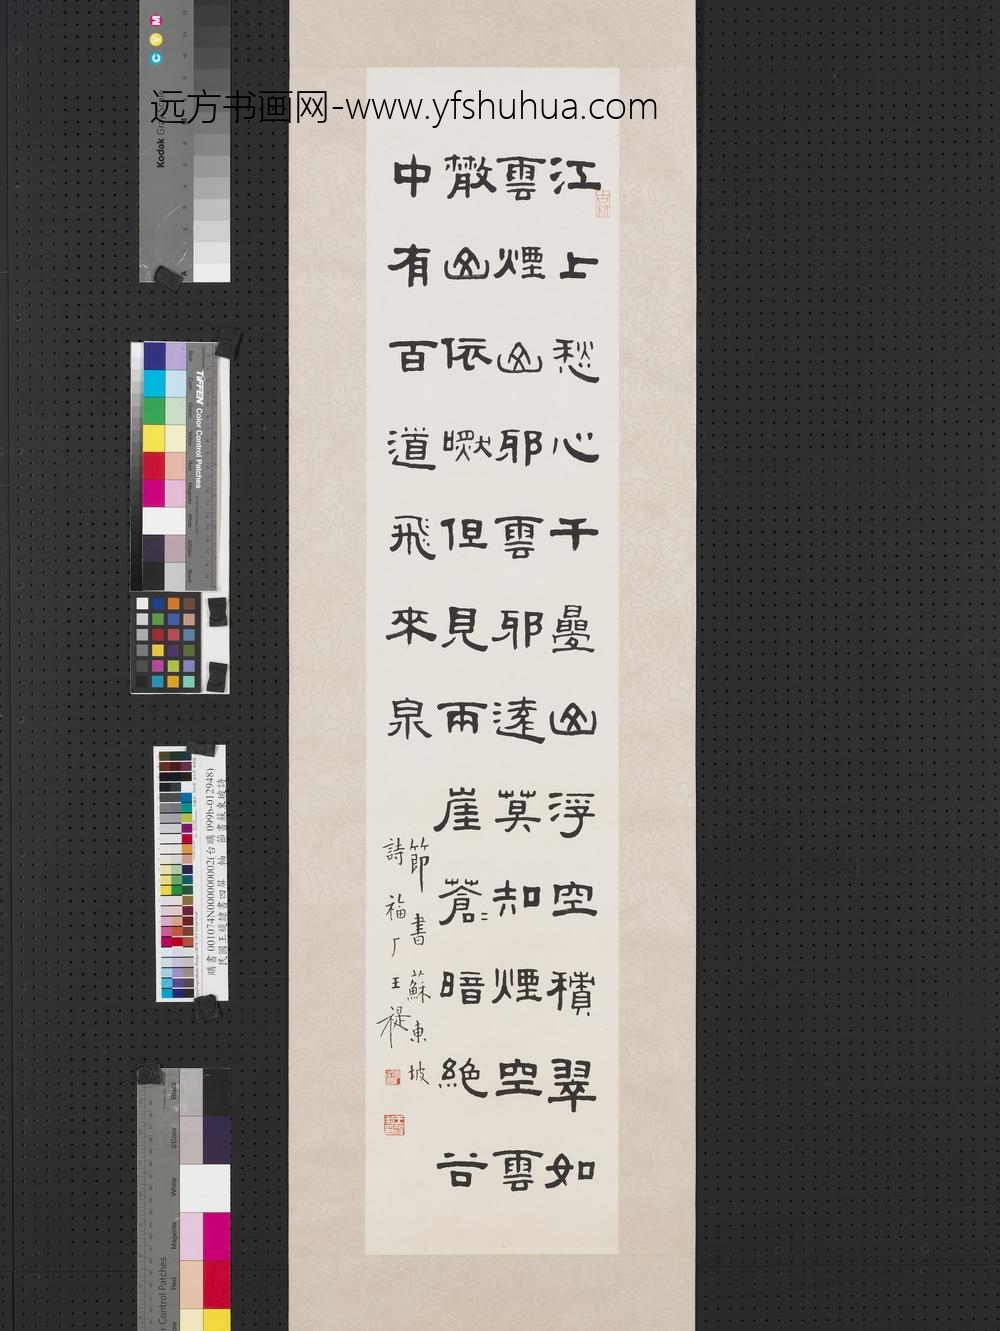 远方书画网-www.yfshuhua.com
江上愁心千疊山浮空積翠如
雲煙山邪雲邪遠莫知煙空雲
散山依然但見兩崖蒼〻暗絶谷
中有百道飛來泉
節書蘇東坡
詩福厂王禔
Kodak
TIFFEN Color Control Patches
Blue
Cyan
Green
Yellow
Red
Magenta
White
3/Color
Black
C Y M
Black
3/Color
White
Magenta
Red
r Control Patches